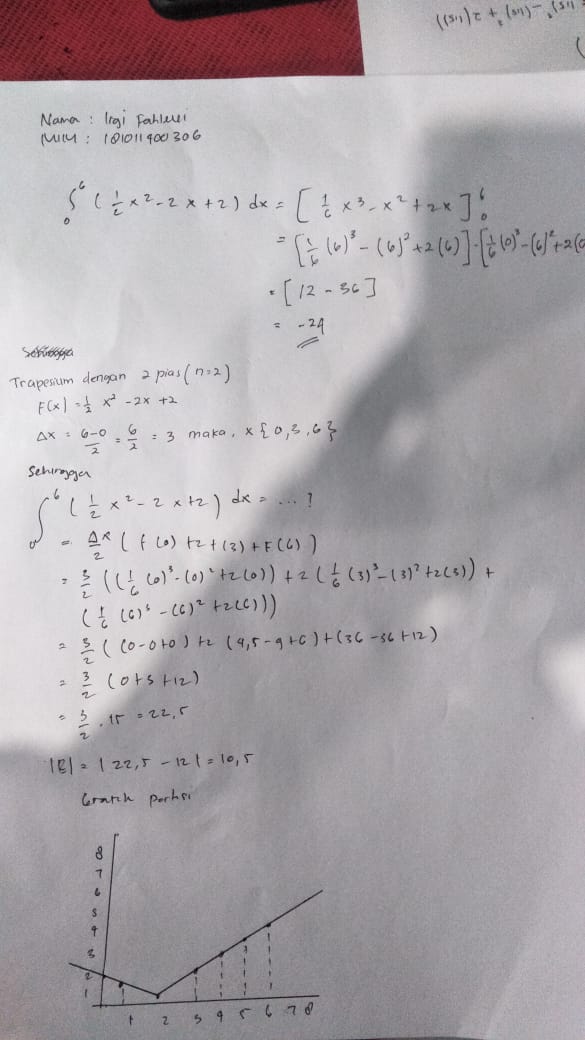 Nama : Irgi Fahlevi
NIM : 181011400306
∫₀⁶ (½x² - 2x + 2) dx = [⅙x³ - x² + 2x]₀⁶
= [⅙(6)³ - (6)² + 2(6)] - [⅙(0)³ - (6)² + 2(0
= [12 - 36]
= -24
Trapesium dengan 2 pias (n=2)
F(x) = ½x² - 2x + 2
Δx = 6-0/2 = 6/2 = 3 maka, x {0,3,6}
Sehingga
∫₀⁶ (½x² - 2x + 2) dx = ... ?
= Δx/2 (f(0) + 2f(3) + F(6))
= 3/2 ((⅙(0)³ - (0)² + 2(0)) + 2(⅙(3)³ - (3)² + 2(3)) +
(⅙(6)³ - (6)² + 2(6)))
= 3/2 ((0-0+0) + 2(4,5 - 9 + 6) + (36 - 36 + 12)
= 3/2 (0+3+12)
= 3/2 . 15 = 22,5
|E| = |22,5 - 12| = 10,5
Grafik
8
7
6
5
4
3
2
1
1 2 3 4 5 6 7 8